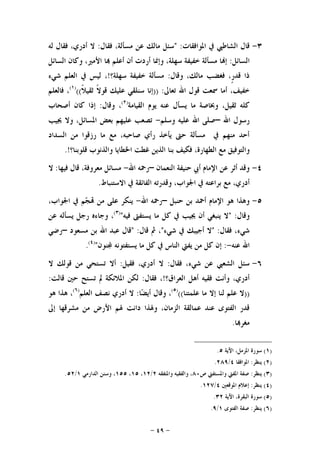 ٣- قال الشاطبي في الموافقات: "سئل مالك عن مسألة، فقال: لا أدري، فقال له
السائل: إنها مسألة خفيفة سهلة، وإنما أردت أن أعلم بها الأمير، وكان السائل
ذا قدرٍ، فغضب مالك، وقال: مسألة خفيفة سهلة؟!، ليس في العلم شيء
خفيف، أما سمعت قول الله تعالى: ((إنا سنلقي عليك قولاً ثقيلاً))(١)، فالعلم
كله ثقيل، وبخاصة ما يسأل عنه يوم القيامة(٢)، وقال: إذا كان أصحاب
رسول الله –صلى الله عليه وسلم- تصعب عليهم بعض المسائل، ولا يجيب
أحد منهم في مسألة حتى يأخذ رأي صاحبه، مع ما رزقوا من السداد
والتوفيق مع الطهارة، فكيف بنا الذين غطت الخطايا والذنوب قلوبنا؟!.
٤- وقد أثر عن الإمام أبي حنيفة النعمان –رحمه الله- مسائل معروفة، قال فيها: لا
أدري، مع براعته في الجواب، وقدرته الفائقة في الاستنباط.
٥- وهذا هو الإمام أحمد بن حنبل –رحمه الله- ينكر على من تهجّم في الجواب،
وقال: "لا ينبغي أن يجيب في كل ما يستفتى فيه"(٣)، وجاءه رجل يسأله عن
شيء، فقال: "لا أجيبك في شيء"، ثم قال: "قال عبد الله بن مسعود –رضي
الله عنه-: إن كل من يفتي الناس في كل ما يستفتونه لمجنون"(٤).
٦- وسئل الشعبي عن شيء، فقال: لا أدري، فقيل: ألا تستحي من قولك لا
أدري، وأنت فقيه أهل العراق؟!، فقال: لكن الملائكة لم تستح حين قالت:
((لا علم لنا إلا ما علمتنا))(٥)، وقال أيضًا: لا أدري نصف العلم(٦)، هذا هو
قدر الفتوى عند عمالقة الزمان، ولهذا دانت لهم الأرض من مشرقها إلى
مغربها.
(١) سورة المزمل، الآية ٥.
(٢) ينظر: الموافقا ٢٨٩/٤.
(٣) ينظر: صفة المفتي والمستفتي ص٨٠، والفقيه والمتفقه ١٢/٢، ١٥، ١٥٥، وسنن الدارمي ٥٢/١.
(٤) ينظر: إعلام الموقعين ١٢٧/٤.
(٥) سورة البقرة، الآية ٣٢.
(٦) ينظر: صفة الفتوى ٩/١.
- ٤٩ -